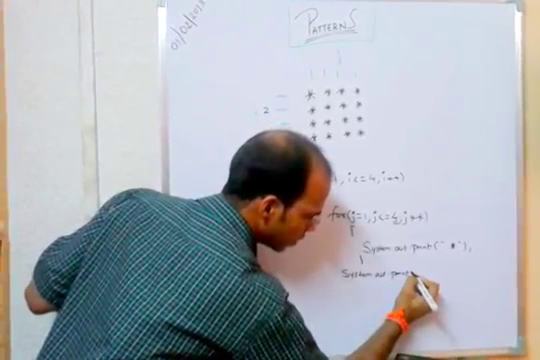 01/02/2013
PATTERNS
* * * *
2 * * * *
* * * *
* * * *
, i<=4, i++)
for(j=1, j<=4, j++)
{
System.out.print(" * "),
}
System.out.print